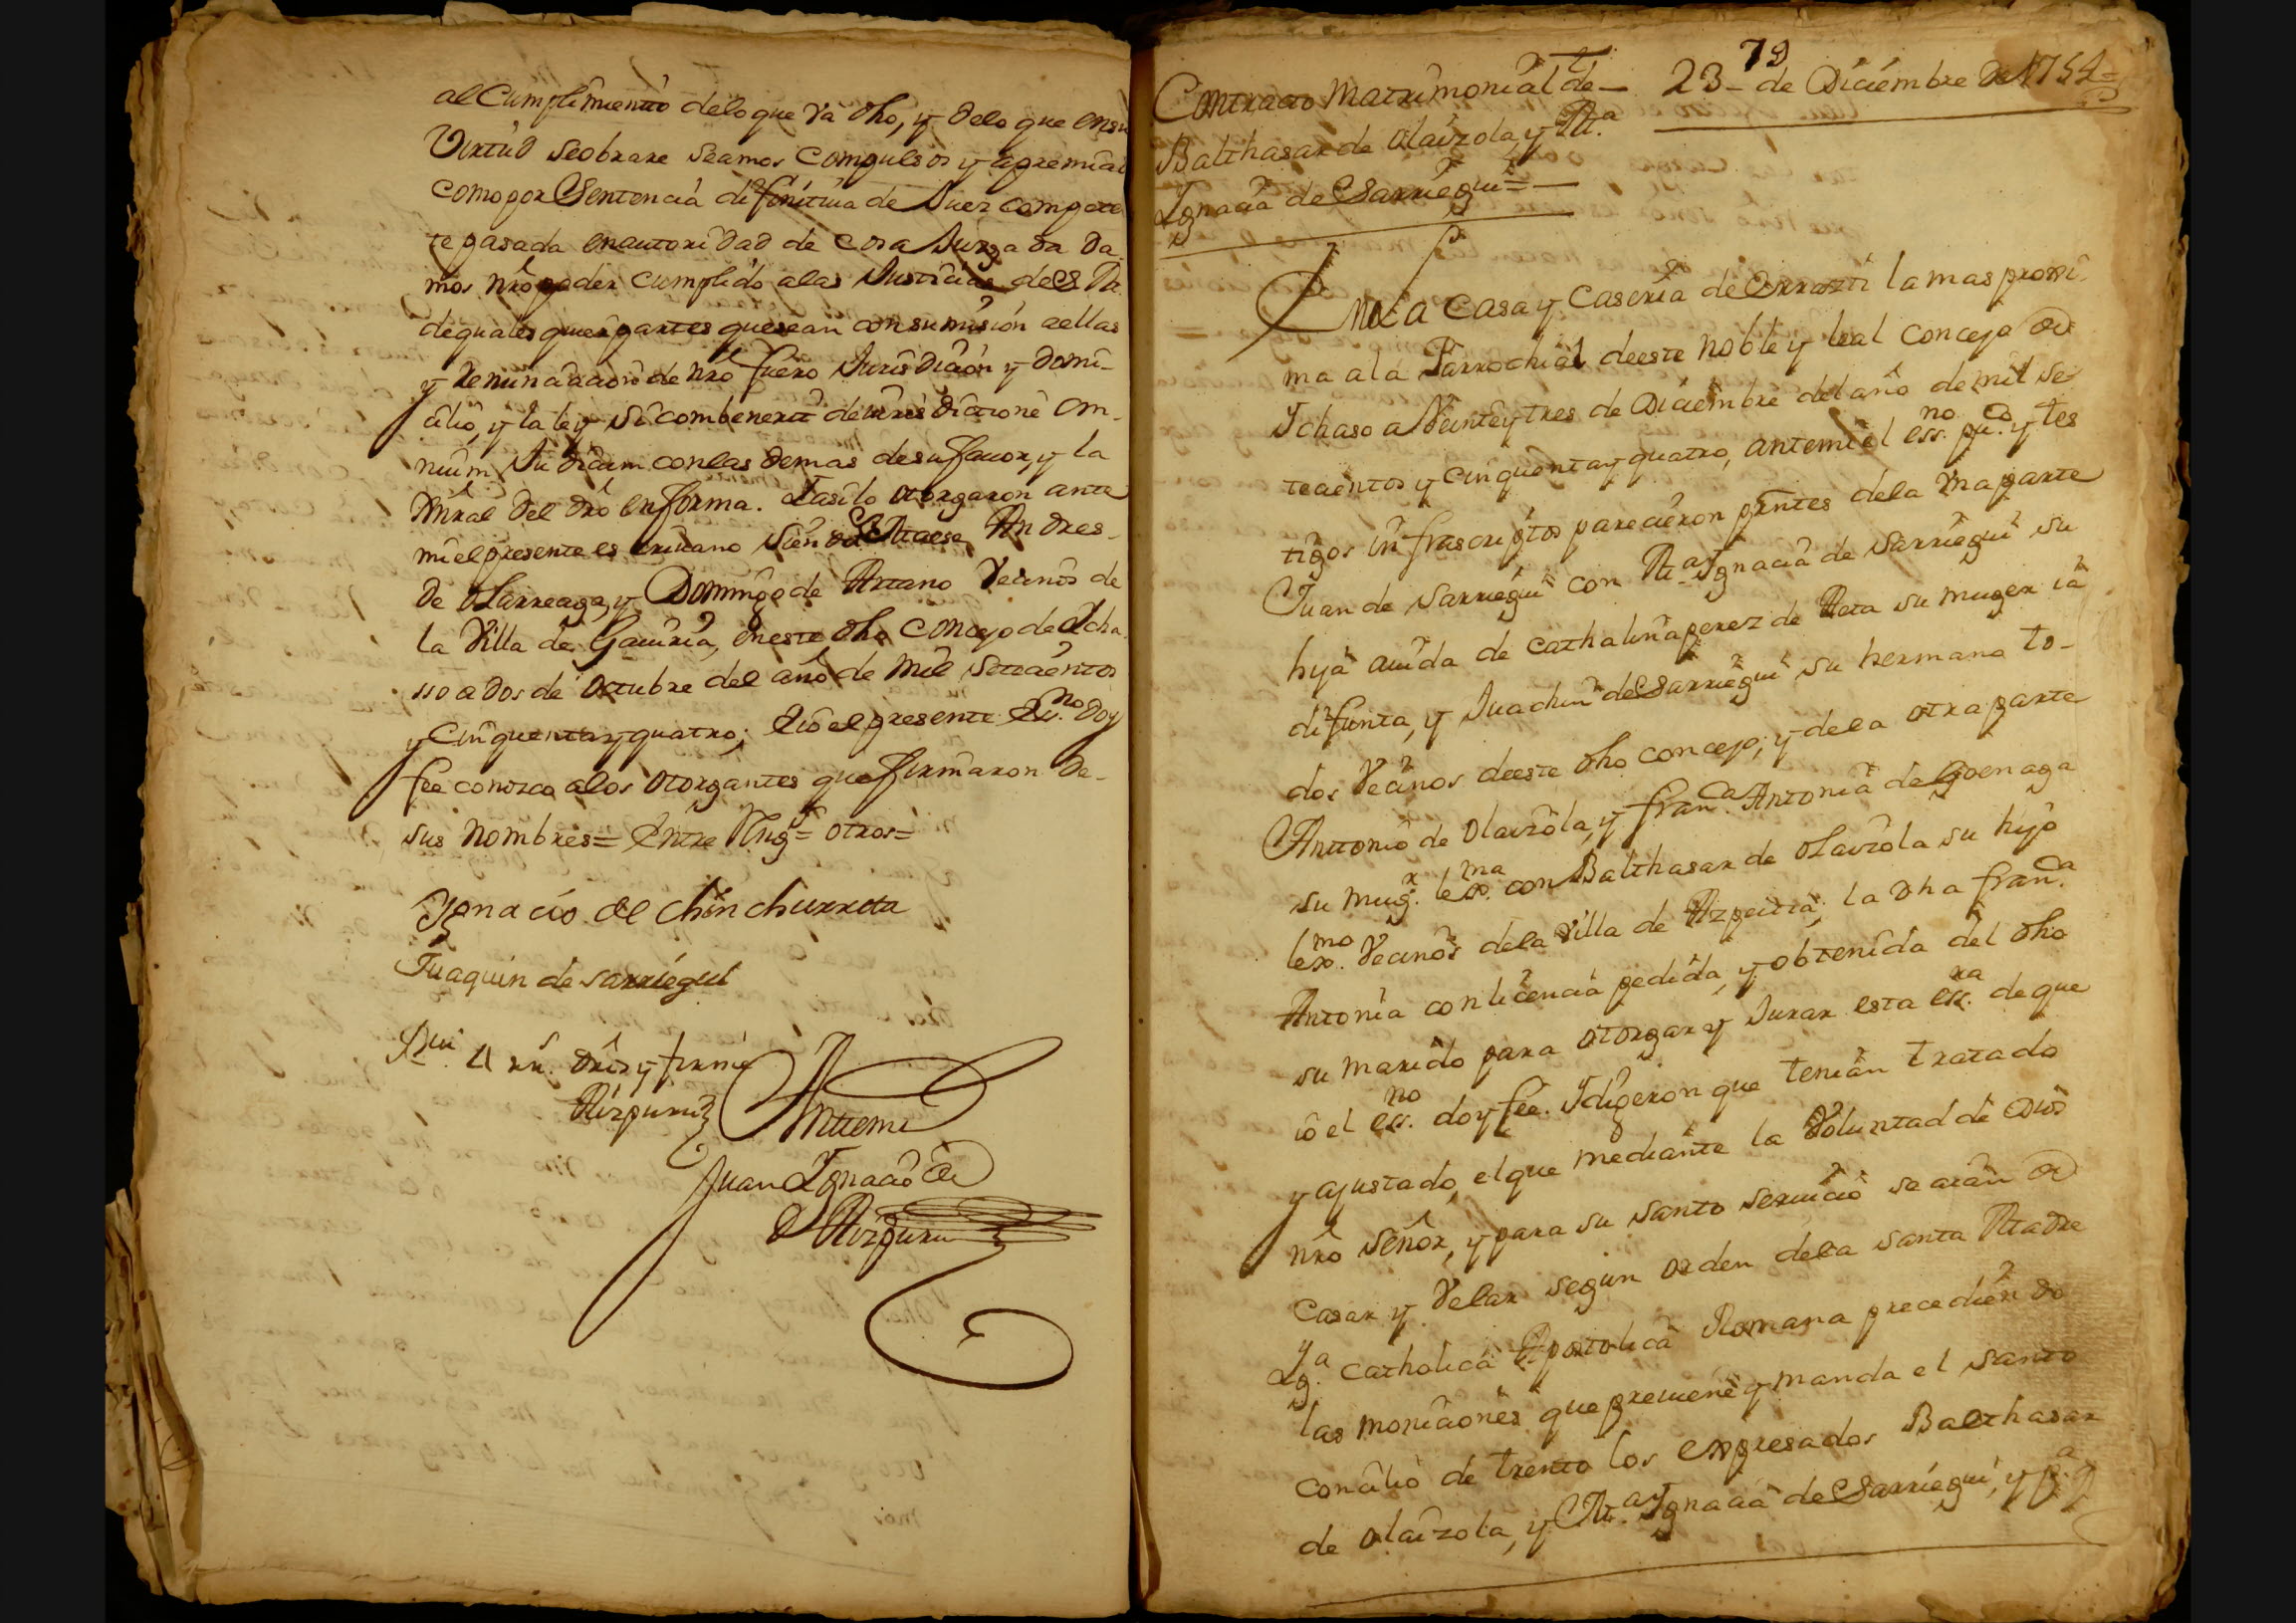 al Cumplimiento delo que Va dho, y delo que ensu
Virtud seobrare seamos Compulsos y apremiad
como por Sentencia difinitiua de Juez compete
te pasada enautoridad de cosa Juzgada da
mos nro poder cumplido alas Justicias de S. M.
dequalesquier partes quesean con sumision aellas
y renunciacion de nro fuero Jurisdicion y domi-
cilio, y la ley si combenerit de iuris dictione om-
nium Judicum con las demas desu fauor, y la
Gnral del dro enforma. Iasilo otorgaron ante
mi el presente escriuano siendo Andres
de Olarreaga, y Domingo de Artano Vecinos de
la Villa de Gauiria, eneste dho Concejo de Icha
sso a dos de Octubre del año de mil setecientos
y cinquenta y quatro; Eio el presente Ess.no doy
fee conozco alos otorgantes que firmaron de-
sus nombres= Entre Rng.s= otros=
Ignacio de Chinchurreta
Juaquin de sarriegui
drõs y firme
Aizpuru
Antemi
Juan Ignacio de
Aizpuru
79
Contracto Matrimonial de— 23- de Diciembre de 1754=
Balthasar de Olaizola, y M.a
Ignacia de Sarriegui=—
Enla Casa y Caseria de la mas proxi-
ma ala Parrochial deeste noble y leal Concejo de
Ichaso a Veinte y tres de Diciembre del año de mil se-
tecientos y cinquenta y quatro, antemi el ess.no pu.co y tes
tigos infrascriptos parecieron pntes dela vna parte
Juan de Sarriegui con M.a Ignacia de Sarriegui su
hija auida de Cathalina perez de Aeta su muger ia
difunta, y Juachin de Sarriegui su hermano to-
dos Vecinos deeste dho concejo; y dela otra parte
Anttonio de Olaizola, y fran.ca Antonia de Goenaga
su mug.r lex.ma con Balthasar de Olaizola su hijo
lex.mo Vecinos dela Villa de Azpeitia; la dha fran.ca
Antonia con licencia pedida, y obtenida del dho
su marido para otorgar y Jurar esta ess.ra de que
io el ess.no doy fee. I digeron que tenian tratado
y ajustado, el que mediante la Voluntad de Dios
nro Señor, y para su santo seruicio se aian de
casar y Velar segun orden dela santa Madre
Yg.a Catholica Apostolica Romana precediendo
las moniciones que preuiene y manda el santo
concilio de trento los expresados Balthasar
de Olaizola, y M.a Ignacia de Sarriegui, y p.a q